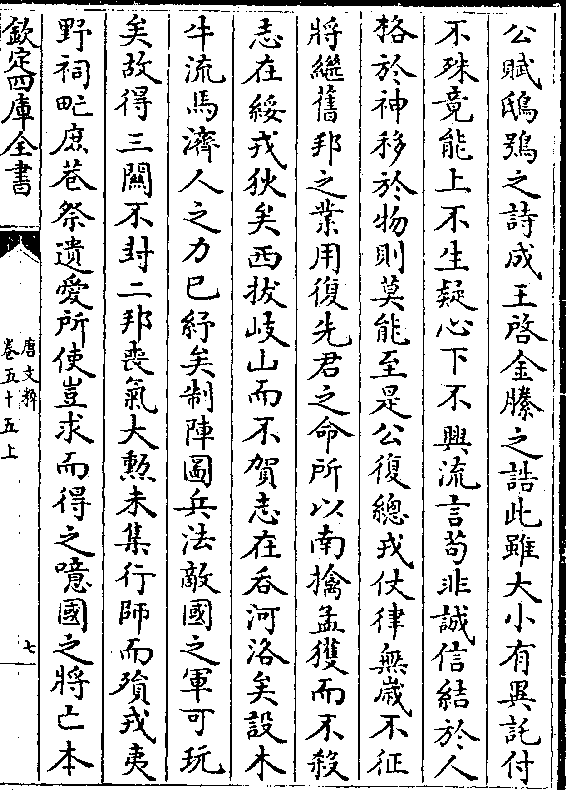 公賦鴟鴞之詩成王啓金縢之誥此雖大小有異託付
不殊竟能上不生疑心下不興流言苟非誠信結於人
格於神移於物則莫能至是公復總戎仗律無嵗不征
將繼舊邦之業用復先君之命所以南擒孟獲而不殺
志在綏戎狄矣西拔岐山而不賀志在吞河洛矣設木
牛流馬濟人之力已紓矣制陣圖兵法敵國之軍可玩
矣故得三關不封二邦喪氣大勲未集行師而殞戎夷
野祠甿庶巷祭遺愛所使豈求而得之噫國之將亡本
欽定四庫全書
唐文粹
卷五十五上
七